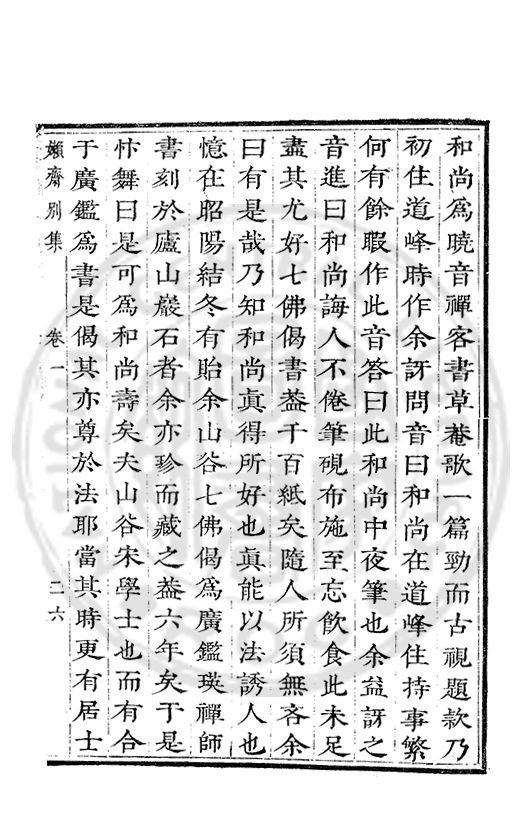 和尚爲曉音禪客書草菴歌一篇勁而古視題款乃
初住道峰時作余訝問音曰和尚在道峰住持事繁
何有餘暇作此音答曰此和尚中夜筆也余益訝之
音進曰和尚誨人不倦筆硯布施至忘飲食此未足
盡其尤好七佛偈書葢千百紙矣隨人所須無吝余
曰有是哉乃知和尚眞得所好也眞能以法誘人也
憶在昭陽結冬有貽余山谷七佛偈爲廣鑑瑛禪師
書刻於廬山巖石者余亦珍而藏之葢六年矣于是
忭舞曰是可爲和尚壽矣夫山谷宋學士也而有合
于廣鑑爲書是偈其亦尊於法耶當其時更有居士
嬾齋別集 卷一 二六